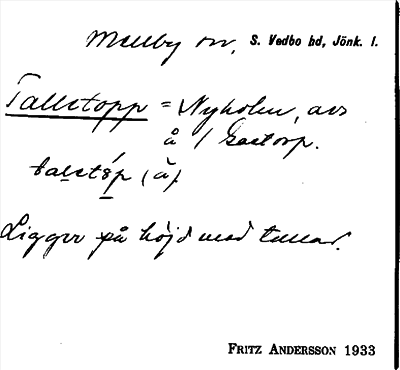 Mellby sn, S. Vedbo hd, Jönk. l.
Talletopp = Nyholm, avs
å 1 Gastorp.
talətó̱p (ă)
Ligger på höjd med tallar.
FRITZ ANDERSSON 1933